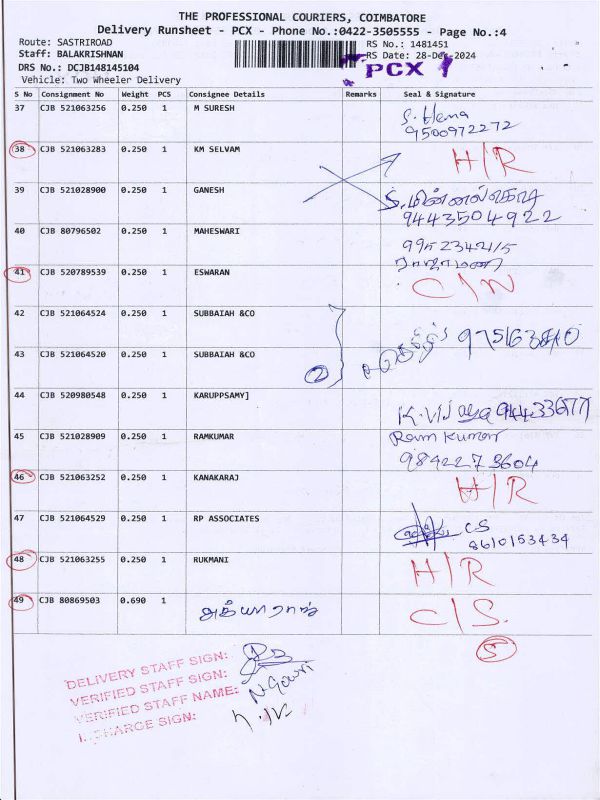 THE PROFESSIONAL COURIERS, COIMBATORE
Delivery Runsheet - PCX - Phone No.:0422-3505555 - Page No.:4
Route: SASTRIROAD RS No.: 1481451
Staff: BALAKRISHNAN RS Date: 28-Dec-2024
DRS No.: DCJB148145104 PCX
Vehicle: Two Wheeler Delivery
S No Consignment No Weight PCS Consignee Details Remarks Seal & Signature
37 CJB 521063256 0.250 1 M SURESH S. Hema
9500972272
38 CJB 521063283 0.250 1 KM SELVAM H/R
39 CJB 521028900 0.250 1 GANESH
9443504922
40 CJB 80796502 0.250 1 MAHESWARI 9952342115
ராஜாமணி
41 CJB 520789539 0.250 1 ESWARAN C/N
42 CJB 521064524 0.250 1 SUBBAIAH &CO
43 CJB 521064520 0.250 1 SUBBAIAH &CO 2
44 CJB 520980548 0.250 1 KARUPPSAMY] K. Vijaya
45 CJB 521028909 0.250 1 RAMKUMAR Ram Kumar
9842273604
46 CJB 521063252 0.250 1 KANAKARAJ H/R
47 CJB 521064529 0.250 1 RP ASSOCIATES CS
8610153434
48 CJB 521063255 0.250 1 RUKMANI H/R
49 CJB 80869503 0.690 1 C/S.
5
DELIVERY STAFF SIGN:
VERIFIED STAFF SIGN:
VERIFIED STAFF NAME: N Gowri
INCHARGE SIGN: